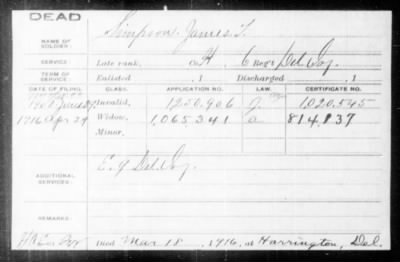 DEAD
NAME OF SOLDIER: Simpson James T.
SERVICE Late rank, Co H, 6 Reg't Del Inf.
TERM OF SERVICE Enlisted , 1 Discharged , 1
DATE OF FILING. CLASS. APPLICATION NO. LAW. CERTIFICATE NO.
Invalid, 1,250,906 1,020,545
1916 Apr 29 Widow, 1,065,341 a 814,137
Minor,
ADDITIONAL SERVICES: E, 9 Del Inf.
REMARKS:
Died Mar 18, 1916, at Harrington, Del.